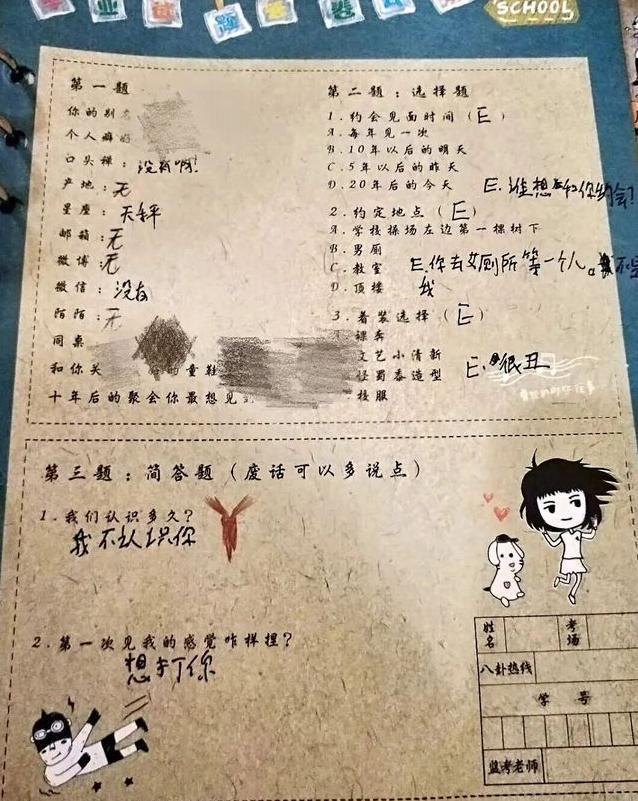 SCHOOL
第一题
你的别
个人癖好
口头禅：没有啊！
产地：无
星座：天秤
邮箱：无
微博：无
微信：没有
陌陌：无
同桌
和你关 的童鞋
十年后的聚会你最想见到
第二题：选择题
1.约会见面时间（E）
A.每年见一次
B.10年以后的明天
C.5年以后的昨天
D.20年后的今天
E.谁想和你约会！
2.约定地点（E）
A.学校操场左边第一棵树下
B.男厕
C.教室
D.顶楼
E.你去女厕所等一个人。
我
3.着装选择（E）
裸奔
文艺小清新
怪蜀黍造型
校服
E.很丑
第三题：简答题（废话可以多说点）
1.我们认识多久？
我不认识你
2.第一次见我的感觉咋样捏？
想打你
姓名
考场
八卦热线
学号
监考老师